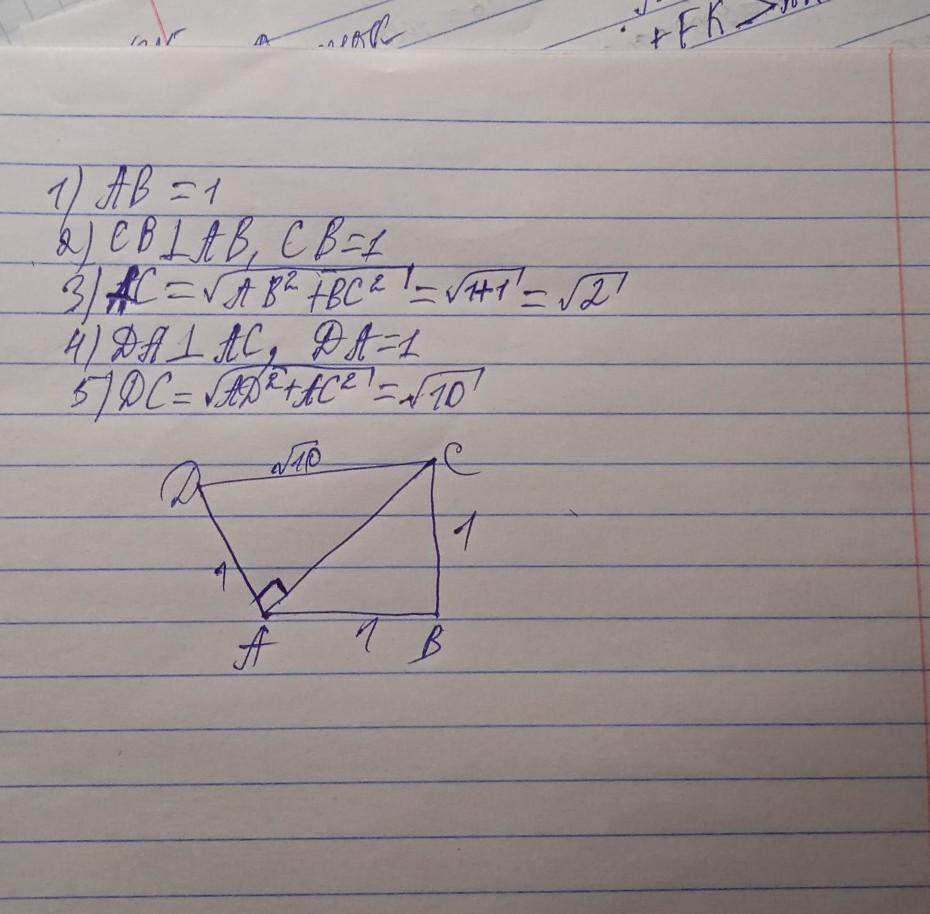 +FK >
1) AB = 1
2) CB⊥AB, CB=1
3) AC = √AB² + BC² = √1+1 = √2
4) DA⊥AC, DA=1
5) DC = √AD² + AC² = √10
√10
D
C
1
1
A
1
B